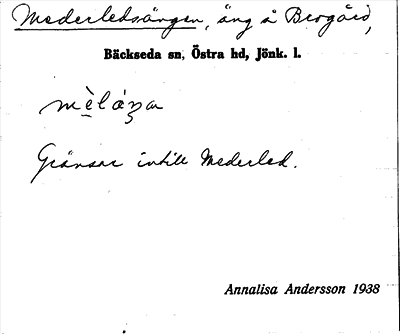 Mederledsängen, äng å Brogård,
Bäckseda sn, Östra hd, Jönk. l.
Gränsar intill Mederled.
Annalisa Andersson 1938